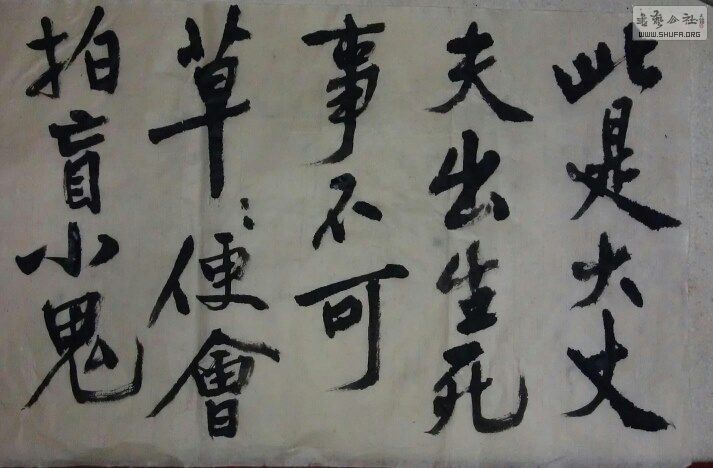 此是大丈
夫出生死
事不可
草〻便會
拍盲小鬼
书艺公社
WWW.SHUFA.ORG